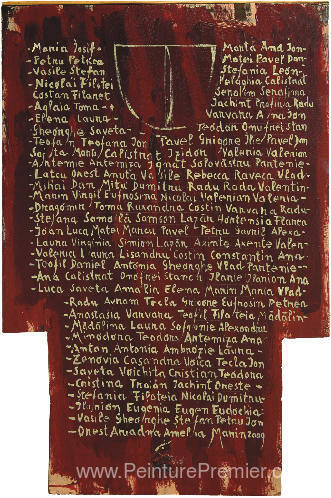 -Maria Iosif-
-Petru Petrea
-Vasile Stefan
-Nicolai Filotei
Costan Filaret
-Aglaia Toma-
-Elena Laura-
-Gheorghe Saveta-
Marta Ana Ion-
Matei Pavel Dan-
Stefania Leon
Pelaghia Calistrat
Serafim Serafima
Iachint Profira Radu
Varvara Ana Ion-
Teodor Onufrei Stan
Teofan Teofana Ion Pavel Ilie Pavel Ion
Sofita Maria Calistrat Izidor Valeria Valerian
Artemie Artemiza Ignat Pantelie-
-Latcu Onest Anuta Vasile Rebecca Raveca Vlad-
-Mihai Dan Mitu Dumitru Radu Rada Valentin-
-Marin Virgil Eufrosina Nicolai Valerian Valeria-
-Dragomir Toma Ruxandra Costin Varvara Radu-
-Stefana Samoila Samson Lazăr Hortensia Filaret
-Ioan Luca Matei Marcu Pavel Petru Gavril Alexa-
-Laura Virginia Simion Lazăr Axinte Axente Valer-
-Valeriu Laura Lisandru Costin Constantin Ana-
-Teofil Daniel Antonia Gheorghe Vlad Pantelie-
-Ana Calistrat Onofrei Stancu Ilarie Ilarion Ana
-Luca Saveta Amalia Elena Marin Maria Vlad-
-Radu Avram Tecla Eufrosin Petrea
-Anastasia Varvara Teofil Filofteia Mădălin-
-Mădălina Laura Sofronie Alexandru
-Minodora Teodora Artemiza Ana-
-Anton Antonia Ambrozie Laura-
-Zenovia Casandra Voica Tecla Ion
-Saveta Voichita Cristian Teodora
-Cristina Traian Iachint Oreste-
-Stefania Filoteia Nicolai Dumitru-
-Ilarion Eugenia Eugen Eudochia-
-Vasile Gheorghe Stefan Petru Ion
-Onest Ariadna Amelia Marin 2009
www.PeinturePremier.com